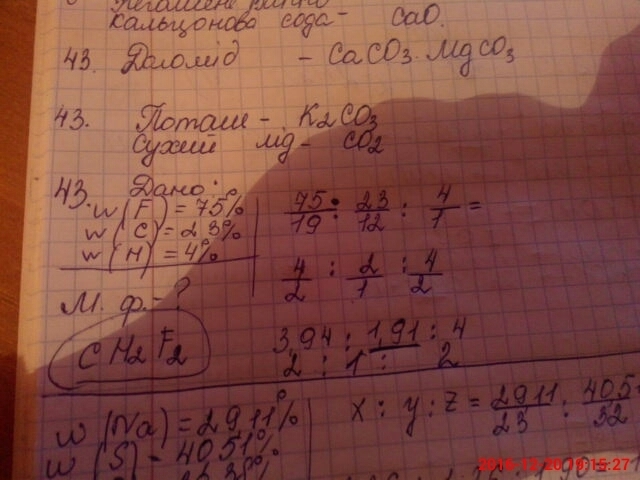 Кальцонова сода - CaO.
43. Даломід - CaCO3 · MgCO3
43. Поташ - K2CO3
Сухий лід - CO2
43. Дано:
w(F) = 75%
w(C) = 23%
w(H) = 4%
М. ф. - ?
CH2F2
75/19 : 23/12 : 4/1 =
4/2 : 2/1 : 4/2
3,94 : 1,91 : 4
2 : 1 : 2
w(Na) = 29,11%
w(S) - 40,51%
x : y : z = 29,11/23 : 40,5/32
2016-12-20 19:15:27